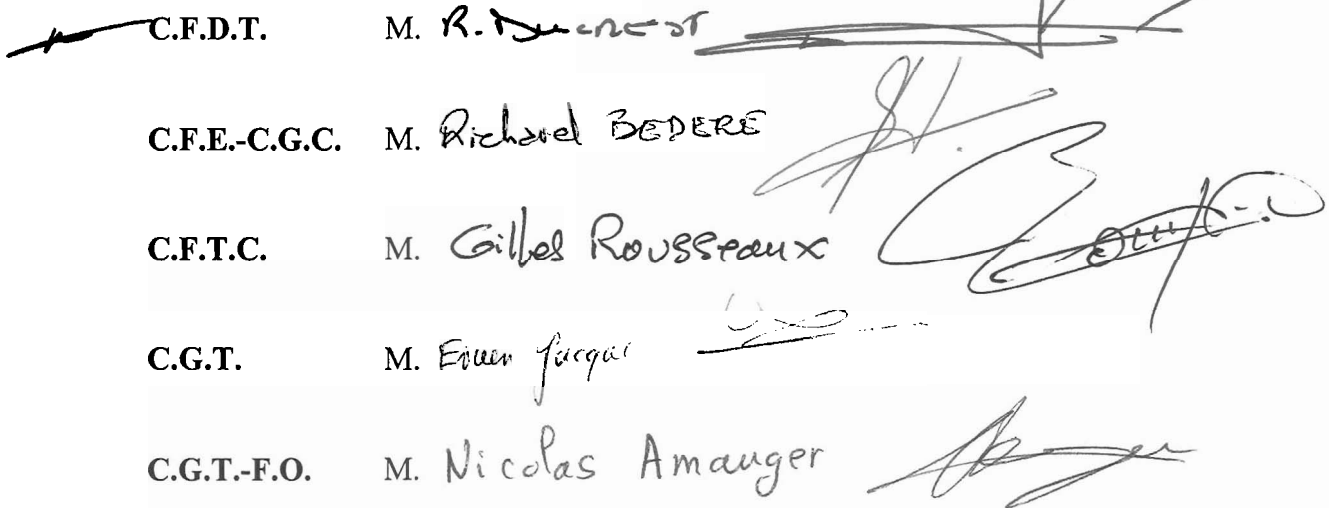 C.F.D.T. M. R. Ducrest
C.F.E.-C.G.C. M. Richard BEDERE
C.F.T.C. M. Gilles Rousseaux
C.G.T. M.
C.G.T.-F.O. M. Nicolas Amauger